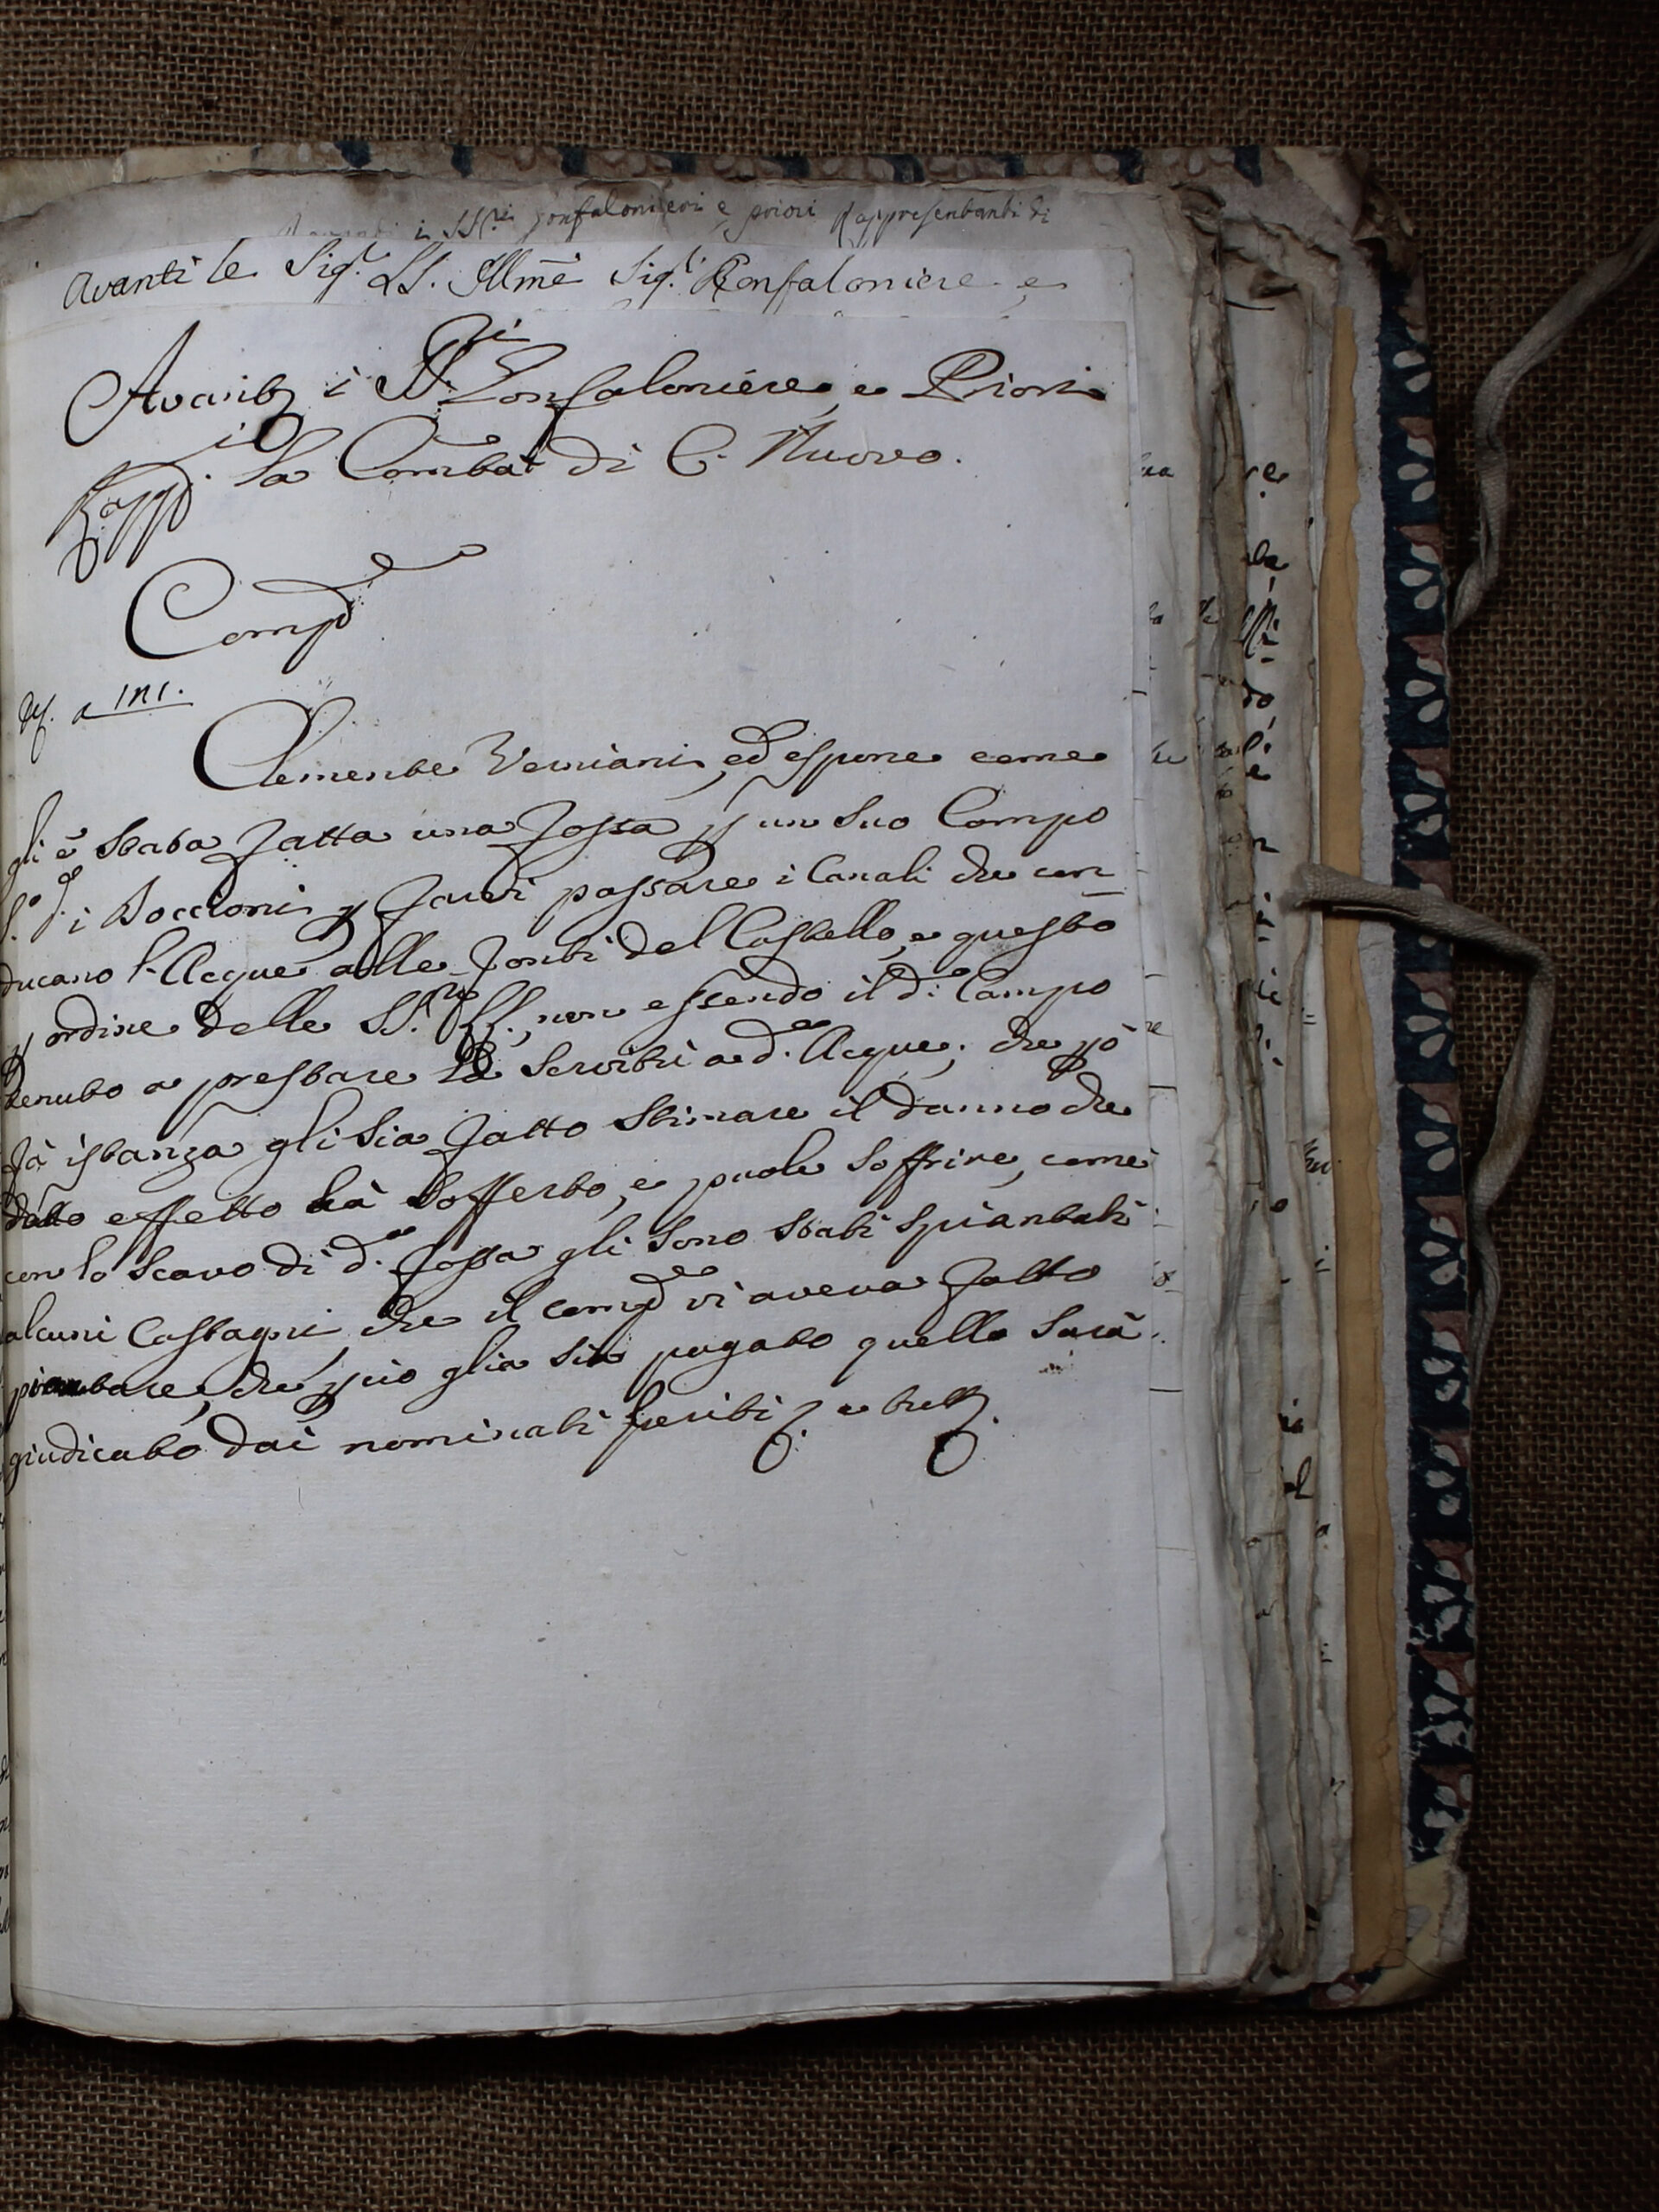 i SS.ri Gonfalonieri e priori Rappresentanti di
Avanti le Sig.e LL. Illme Sig.ri Gonfaloniere e
Avanti i SS.ri Gonfaloniere, e Priori
Rappti la Comtà di C. Nuovo.
Comp.e
a 171.
Clemente Verniani, ed espone come
gli è stata fatta una fossa p un suo Campo
l.o d.o i Boccioni p farvi passare i Canali che con
ducano l'Acque alle fonti del Castello, e questo
p ordine delle SS.rie LL., non essendo il d.o Campo
tenuto a prestare la servitù a d.e Acque; che pò
fà istanza gli sia fatto stimare il danno che
detto effetto hà sofferto, e puole soffrire, come
con lo scavo di d.a fossa gli sono stati spiantati
alcuni Castagni, che il comp.e vi aveva fatto
piantare, che p ciò glia sia pagato quello sarà
giudicato dai nominati periti